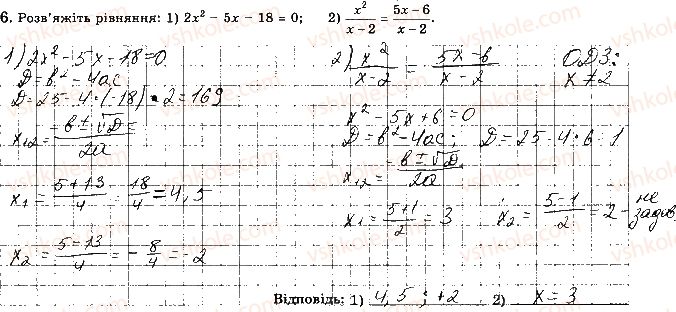 6. Розв'яжіть рівняння: 1) 2x² − 5x − 18 = 0; 2) x²/(x − 2) = (5x − 6)/(x − 2).
1) 2x² − 5x − 18 = 0
D = b² − 4ac
D = 25 − 4·(−18)·2 = 169
x₁,₂ = (−b ± √D)/2a =
x₁ = (5+13)/4 = 18/4 = 4,5
x₂ = (5−13)/4 = −8/4 = −2
2) x²/(x−2) = (5x−6)/(x−2) ОДЗ:
x ≠ 2
x² − 5x + 6 = 0
D = b² − 4ac; D = 25 − 4·6 = 1
x₁,₂ = (−b ± √D)/2a
x₁ = (5+1)/2 = 3 x₂ = (5−1)/2 = 2 − не задов.
Відповідь: 1) 4,5; +2 2) x = 3
vshkole.com